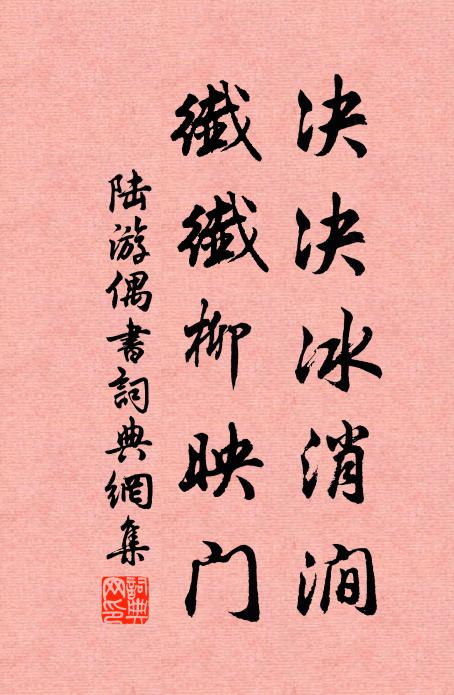 决决冰消涧
纖纖柳映门
陆游偶書詞典網集
詞典网印